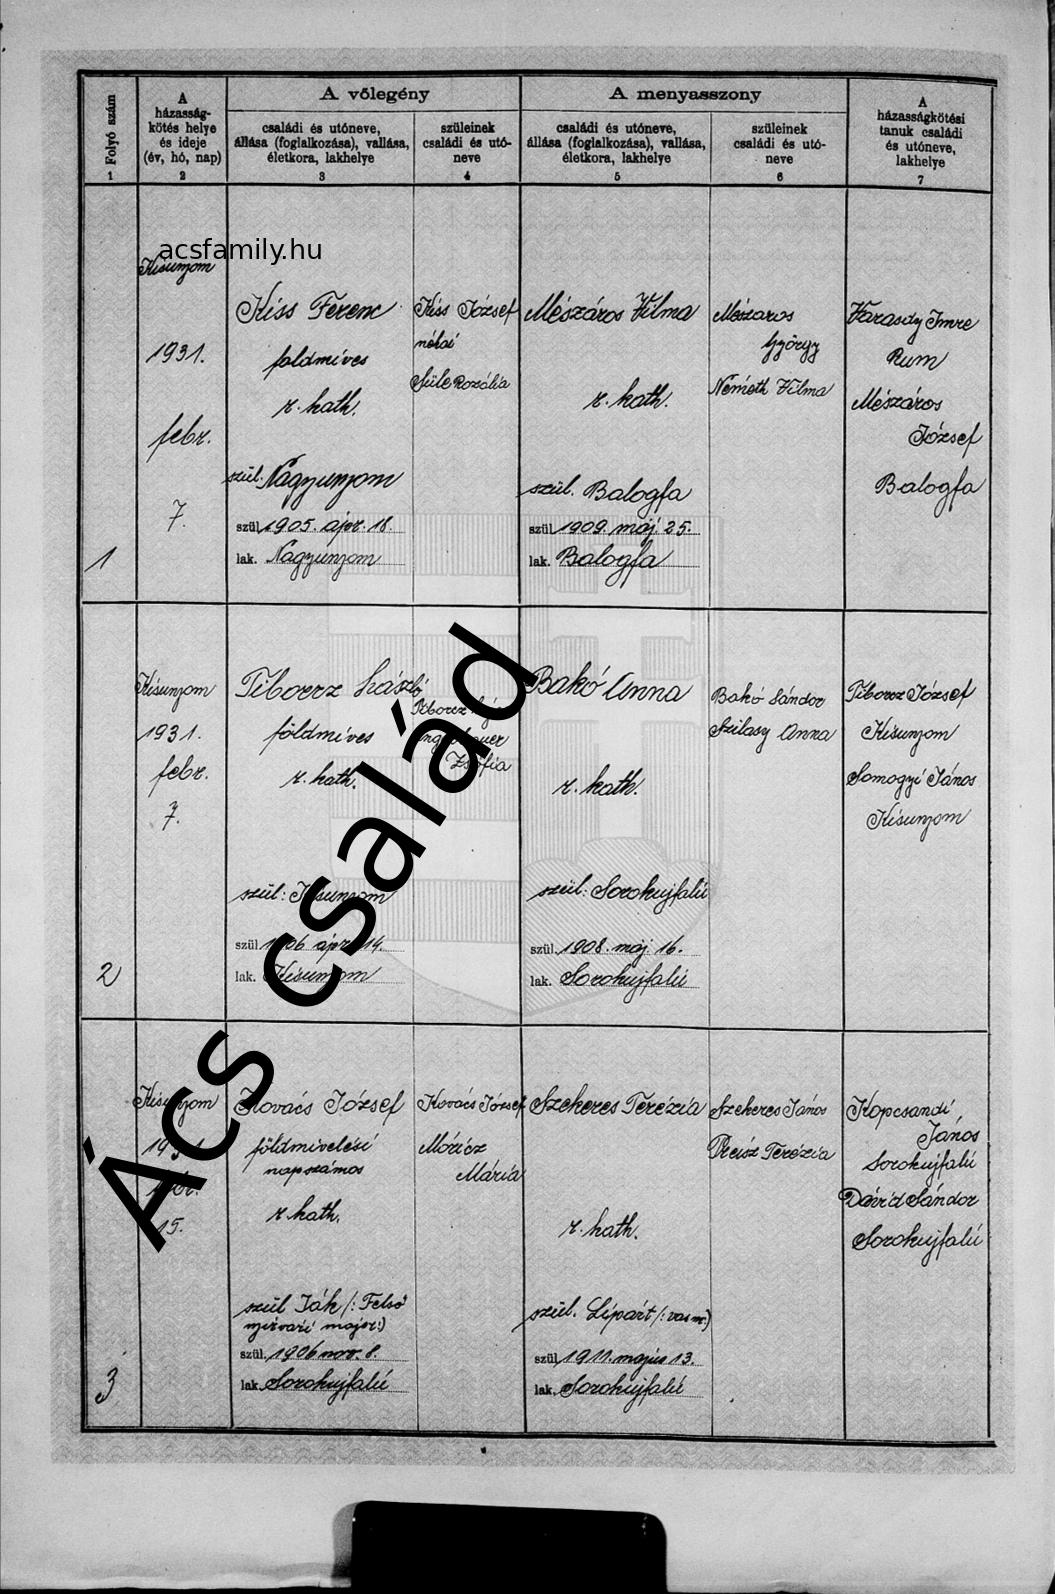 Folyó szám
1
A
házasság-
kötés helye
és ideje
(év, hó, nap)
2
A vőlegény
családi és utóneve,
állása (foglalkozása), vallása,
életkora, lakhelye
3
szüleinek
családi és utó-
neve
4
A menyasszony
családi és utóneve,
állása (foglalkozása), vallása,
életkora, lakhelye
5
szüleinek
családi és utó-
neve
6
A
házasságkötési
tanuk családi
és utóneve,
lakhelye
7
acsfamily.hu
1
Kisunyom
1931.
febr.
7.
Kiss Ferenc
földmíves
r. kath.
szül. Nagyunyom
szül. 1905. ápr. 18.
lak. Nagyunyom
Kiss József
néhai
Süle Rozália
Mészáros Vilma
r. kath.
szül. Balogfa
szül. 1909. máj. 25.
lak. Balogfa
Mészáros
György
Németh Vilma
Varasdy Imre
Rum
Mészáros
József
Balogfa
2
Kisunyom
1931.
febr.
7.
Tiborcz László
földmíves
r. kath.
szül: Kisunyom
szül. 1906 ápr. 14.
lak. Kisunyom
Tiborcz
Zsófia
Bakó Anna
r. kath.
szül: Sorokujfalú
szül. 1908. máj. 16.
lak. Sorokujfalú
Bakó Sándor
Szilasy Anna
Tiborcz József
Kisunyom
Somogyi János
Kisunyom
Ács család
3
Kisunyom
1931.
febr.
15.
Kovács József
földmívelési
napszámos
r. kath.
szül Ják /: Felső
nyirvári major:)
szül. 1906 nov. 8.
lak. Sorokujfalú
Kovács József
Móricz
Mária
Szekeres Terézia
r. kath.
szül. Lipárt /: vas m:)
szül. 1911. május 13.
lak. Sorokujfalú
Szekeres János
Reisz Terézia
Kopcsándi
János
Sorokujfalú
Dávid Sándor
Sorokujfalú